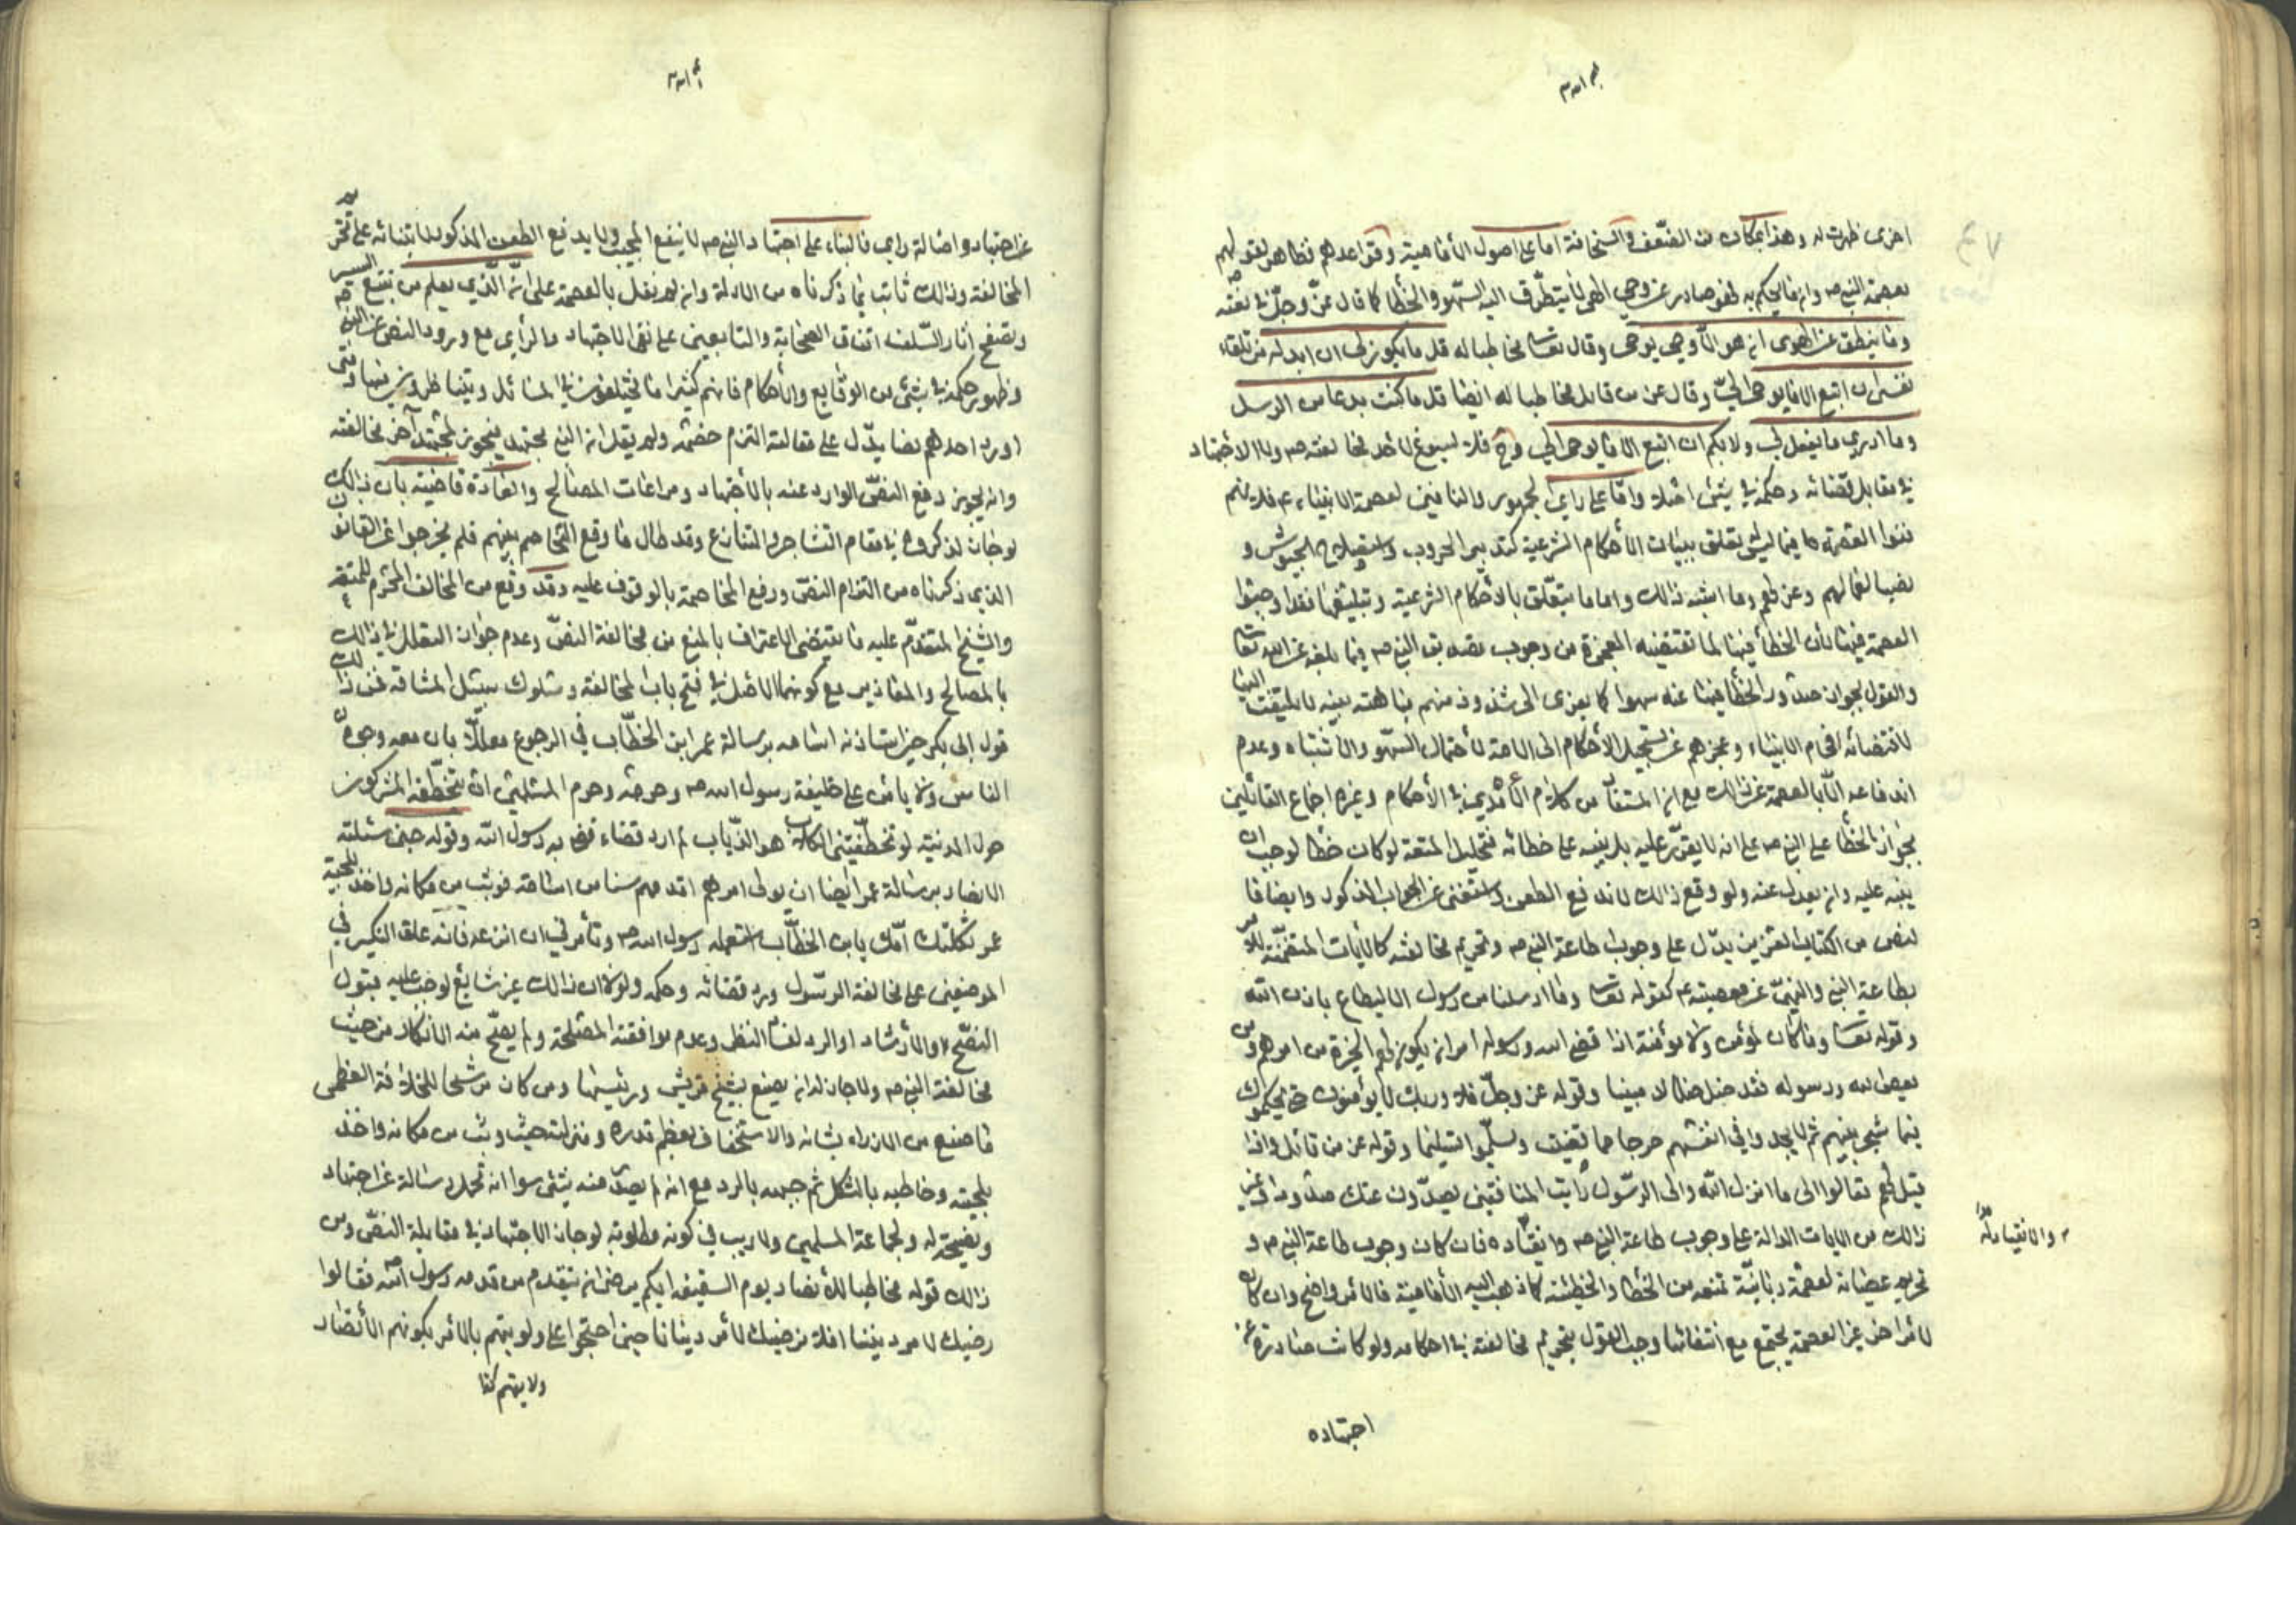 اخرى ظهرت له وهذا بمكان من الضعف والسخافة اما على اصول الأمامية وقواعدهم فظاهر لقولهم
بعصمة النبي ص وان ما يحكم به فهو صادر عن وحي الهي لا يتطرق اليه السهو والخطأ كما قال عز وجل في نعته
وما ينطق عن الهوى ان هو الا وحي يوحى وقال تعالى مخاطبا له قل ما يكون لي ان ابدله من تلقاء
نفسي ان اتبع الا ما يوحى الي وقال عز من قائل مخاطبا له ايضا قل ما كنت بدعا من الرسل
وما ادري ما يفعل بي ولا بكم ان اتبع الا ما يوحى الي وح فلا يسوغ لأحد مخالفته ص ولا الاجتهاد
في مقابل قضائه وحكمه في شيء اصلا واما على رأي الجمهور والنافين لعصمة الانبياء ع فلانهم
نفوا العصمة فيما ليس يتعلق ببيان الأحكام الشرعية كتدبير الحروب الجيوش و
نصب العمال لهم وعزلهم وما اشبه ذالك واما ما يتعلق بالأحكام الشرعية وتبليغها فقد اوجبوا
العصمة فيها بأن الخطأ فيها لما تقتضيه المعجزة من وجوب تصديق النبي ص فيما بلغه عن الله تعالى
والقول بجواز صدور الخطأ فيها عنه سهوا كما يعزى الى شذوذ منهم مباهته بينة لا يلتفت اليها
لاقتضائه افحام الانبياء وعجزهم عن تسجيل الأحكام الى الامة لأحتمال السهو والاشتباه وعدم
اندفاعه الا بالعصمة عن ذالك مع ان المستفاد من كلام الأمدي في الأحكام وغيره اجماع القائلين
بجواز الخطأ على النبي ص على انه لا يقر عليه بل ينبه على خطائه فتحليل المتعة لو كان خطأ لوجب ان
ينبه عليه وان يعدل عنه ولو وقع ذالك لاندفع الطعن واستغنى عن الجواب المذكور وايضا فا
لنص من الكتاب العزيز يدل على وجوب اطاعة النبي ص وتحريم مخالفته كالأيات المتضمنة للأمر
بطاعة النبي والنهي عن معصيته ع كقوله تعالى وما ارسلنا من رسول الا ليطاع باذن الله
وقوله تعالى وما كان لمؤمن ولا مؤمنة اذا قضى الله ورسوله امرا ان يكون لهم الخيرة من امرهم ومن
يعص الله ورسوله فقد ضل ضلالا مبينا وقوله عز وجل فلا وربك لا يؤمنون حتى يحكموك
فيما شجر بينهم ثم لا يجدوا في انفسهم حرجا مما قضيت ويسلموا تسليما وقوله عز من قائل واذا
قيل لهم تعالوا الى ما انزل الله والى الرسول رأيت المنافقين يصدون عنك صدودا وغير
ذالك من الايات الدالة على وجوب طاعة النبي ص وانقياده فان كان وجوب طاعة النبي ص و
والانقياد له
تحريم عصيانه لعصمة ربانية تمنعه من الخطأ والخطيئة كما ذهب اليه الأمامية فالأمر واضح وان كان
لأمر اخر غير العصمة يجتمع مع انتفائها وجب القول بتحريم مخالفته في احكامه ولو كانت صادرة عن
اجتهاده
عن اجتهاد واصالة رأي فالبناء على اجتهاد النبي ص لا ينفع المجيب ولا يدفع الطعن المذكور لابتنائه على تحريم
المخالفة وذالك ثابت بما ذكرناه من الادلة وان لم نقل بالعصمة على انه الذي يعلم من تتبع السير
وتصفح أثار السلف اتفاق الصحابة والتابعين على نفي الاجتهاد والرأي مع ورود النص عن النبي ص
وظهور حكمه في شيء من الوقايع والأحكام فانهم كثيرا ما يختلفون في المسائل ويتناظرون فيها ومتى
اورد احدهم نصا يدل على مقالته التزم خصمه ولم يقل ان النبي مجتهد فيجوز لمجتهد آخر مخالفته
وانه يجوز دفع النص الوارد عنه بالأجتهاد ومراعات المصالح والعادة قاضية بان ذالك
لو جاز لذكروه في مقام التشاجر والتنازع وقد طال ما وقع التخاصم بينهم فلم يخرجوا عن القانون
الذي ذكرناه من التزام النص ورفع المخاصمة بالوقوف عليه وقد وقع من المخالف المحرم للمتعة
والشيخ المتقدم عليه ما يقتضي الاعتراف بالمنع من مخالفة النص وعدم جواز التعلل في ذالك
بالمصالح والمفاسد مع كونهما الاصل في فتح باب المخالفة وسلوك سبيل المشاقة فمن ذالك
قول ابي بكر حين استاذنه اسامه برسالة عمر ابن الخطاب في الرجوع معللا بان معه وجوه
الناس ولا يأمن على خليفة رسول الله ص وحرمه وحرم المسلمين ان يتخطفه المشركون
حول المدينة لو تخطفتني الكلاب والذياب لم ارد قضاء قضى به رسول الله وقوله حين سئلته
الانصار برسالة عمر ايضا ان يولى امرهم اقدمهم سنا من اسامة فوثب من مكانه واخذ بلحية
عمر ثكلتك امك يابن الخطاب استعمله رسول الله ص وتأمرني ان انزعه فانه علق النكير في
الموضعين على مخالفة الرسول ورد قضائه وحكمه ولولا ان ذالك غير شايع لوجب عليه قبول
النصح والأرشاد او الرد لفساد النظر وعدم موافقته المصلحة ولم يصح منه الأنكار من حيث
مخالفة النبي ص ولا جاز له ان يصنع بشيخ قريش ورئيسها ومن كان مرشحا للخلافة العظمى
ما صنع من الازراء بشانه والاستخفاف بعظم قدره ومنزلته حيث وثب من مكانه واخذ
بلحيته وخاطبه بالثكل ثم جبهه بالرد مع انه لم يصدر منه شيء سوا انه تحمل رسالة عن اجتهاد
ونصيحة له ولجماعة المسلمين ولا ريب في كونه مطلوبه لو جاز الاجتهاد في مقابلة النص ومن
ذالك قوله مخاطبا للأنصار يوم السقيفة ايكم يرضى ان يتقدم من قدمه رسول الله فقالوا
رضيك لامر ديننا افلا نرضيك لأمر دنيانا حين احتجوا على اولويتهم بالأمر بكونهم الأنصار